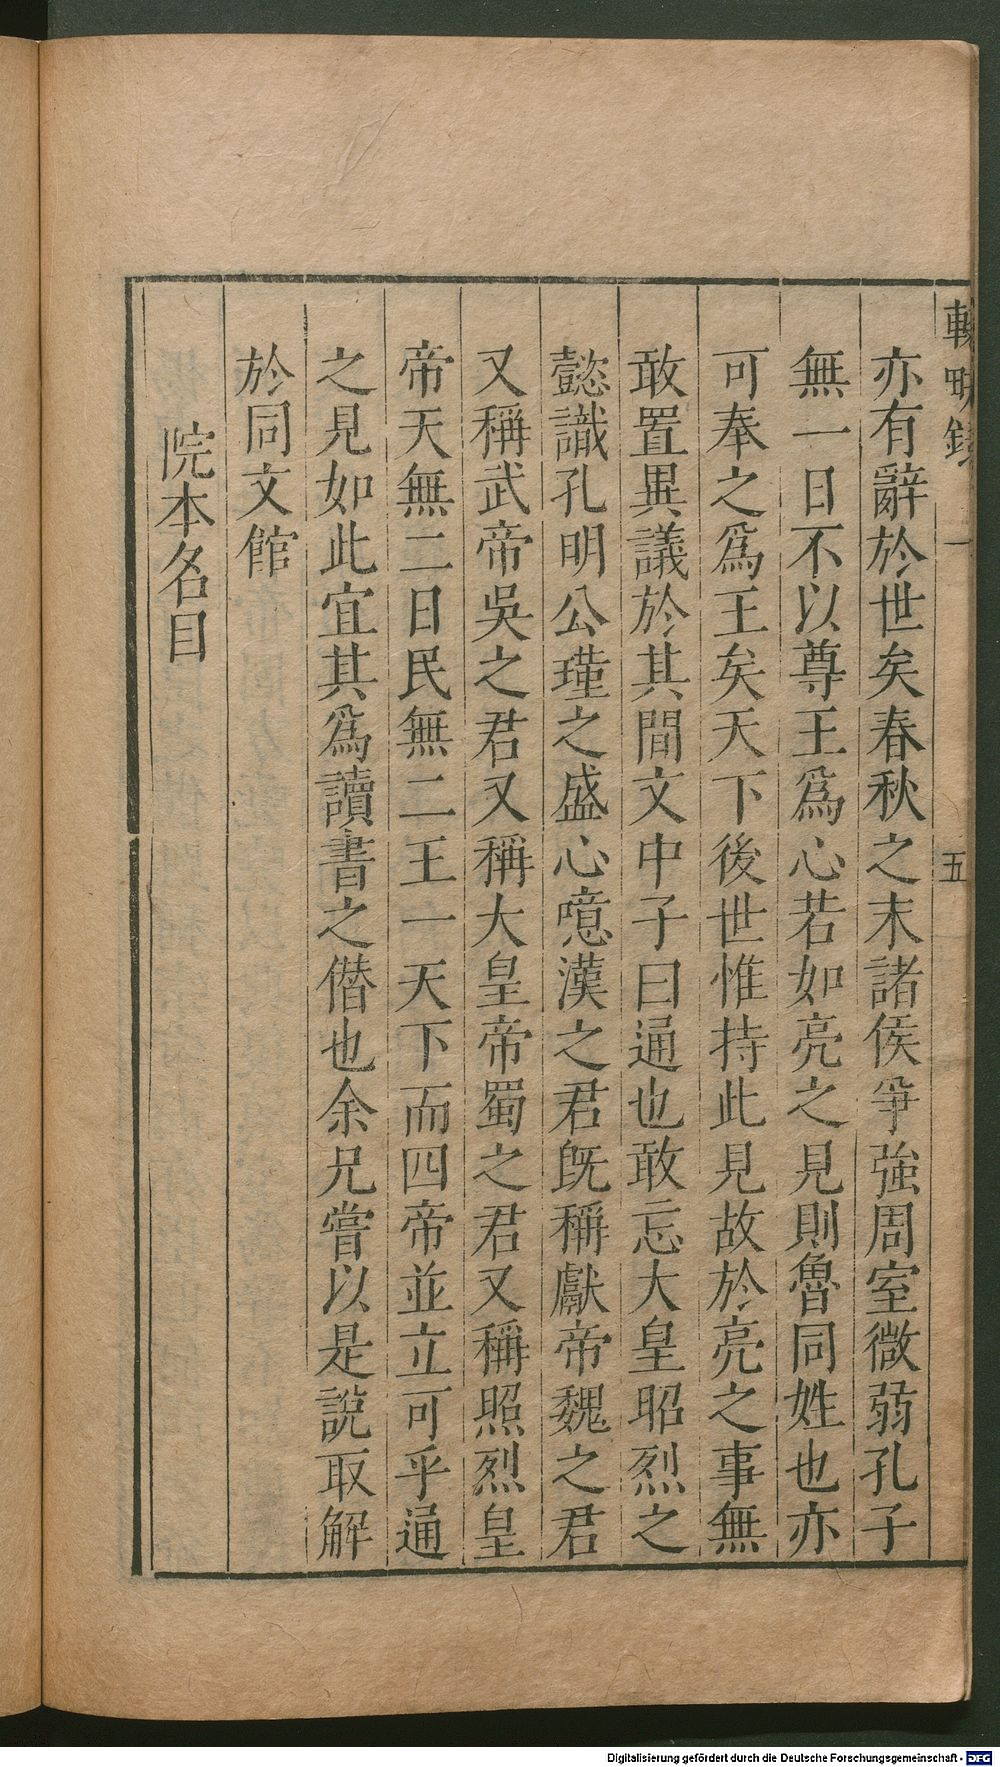 輟畊錄 一 五
亦有辭於世矣春秋之末諸侯爭強周室微弱孔子
無一日不以尊王爲心若如亮之見則魯同姓也亦
可奉之爲王矣天下後世惟持此見故於亮之事無
敢置異議於其間文中子曰通也敢忘大皇昭烈之
懿識孔明公瑾之盛心噫漢之君旣稱獻帝魏之君
又稱武帝吳之君又稱大皇帝蜀之君又稱照烈皇
帝天無二日民無二王一天下而四帝並立可乎通
之見如此宜其爲讀書之僭也余兄嘗以是說取解
於同文館
院本名目
Digitalisierung gefördert durch die Deutsche Forschungsgemeinschaft - DFG